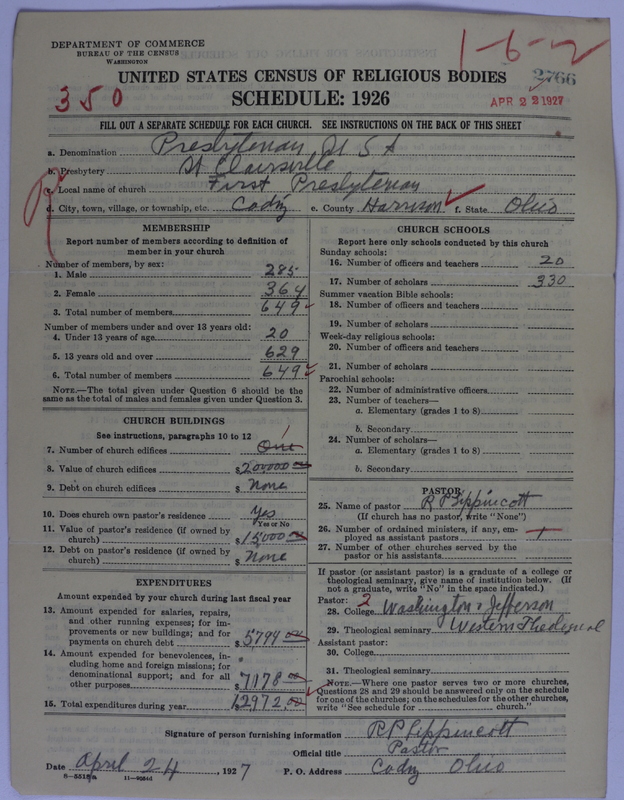 DEPARTMENT OF COMMERCE
BUREAU OF THE CENSUS
WASHINGTON
1-6-2
2766
APR 22 1927
350
UNITED STATES CENSUS OF RELIGIOUS BODIES
SCHEDULE: 1926
FILL OUT A SEPARATE SCHEDULE FOR EACH CHURCH. SEE INSTRUCTIONS ON THE BACK OF THIS SHEET
a. Denomination Presbyterian U S A
b. Presbytery St Clairsville
c. Local name of church First Presbyterian
d. City, town, village, or township, etc. Cadiz e. County Harrison f. State Ohio
MEMBERSHIP
Report number of members according to definition of
member in your church
Number of members, by sex:
1. Male 285
2. Female 364
3. Total number of members 649
Number of members under and over 13 years old:
4. Under 13 years of age 20
5. 13 years old and over 629
6. Total number of members 649
NOTE.—The total given under Question 6 should be
same as the total of males and females given under Question 3.
CHURCH BUILDINGS
See instructions, paragraphs 10 to 12
7. Number of church edifices One
8. Value of church edifices $200000
9. Debt on church edifices $ None
10. Does church own pastor's residence Yes
Yes or No
11. Value of pastor's residence (if owned by
church) $15000
12. Debt on pastor's residence (if owned by
church) $ None
EXPENDITURES
Amount expended by your church during last fiscal year
13. Amount expended for salaries, repairs,
and other running expenses; for im-
provements or new buildings; and for
payments on church debt $5794 00
14. Amount expended for benevolences, in-
cluding home and foreign missions; for
denominational support; and for all
other purposes $7178
15. Total expenditures during year 12972 00
CHURCH SCHOOLS
Report here only schools conducted by this church
Sunday schools:
16. Number of officers and teachers 20
17. Number of scholars 330
Summer vacation Bible schools:
18. Number of officers and teachers
19. Number of scholars
Week-day religious schools:
20. Number of officers and teachers
21. Number of scholars
Parochial schools:
22. Number of administrative officers
23. Number of teachers—
a. Elementary (grades 1 to 8)
b. Secondary
24. Number of scholars—
a. Elementary (grades 1 to 8)
b. Secondary
PASTOR
25. Name of pastor R P Lippincott
(If church has no pastor, write "None")
26. Number of ordained ministers, if any, em-
ployed as assistant pastors
27. Number of other churches served by the
pastor or his assistants
If pastor (or assistant pastor) is a graduate of a college or
theological seminary, give name of institution below. (If
not a graduate, write "No" in the space indicated.)
Pastor: 2
28. College Washington & Jefferson
29. Theological seminary Western Theological
Assistant pastor:
30. College
31. Theological seminary
NOTE.—Where one pastor serves two or more churches,
Questions 28 and 29 should be answered only on the schedule
for one of the churches; on the schedules for the other churches,
write "See schedule for church."
Signature of person furnishing information R P Lippincott
Official title Pastor
Date April 24, 1927 P. O. Address Cadiz Ohio